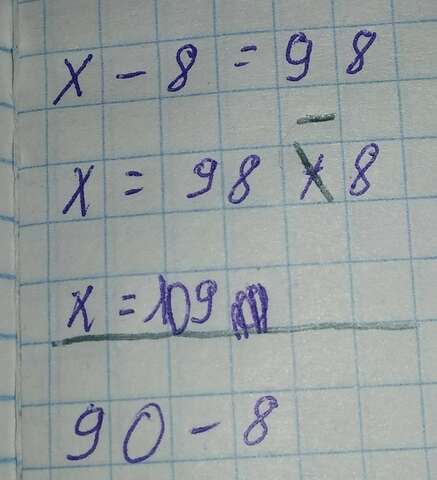 x - 8 = 98
-
x = 98 + 8
x = 109
90 - 8